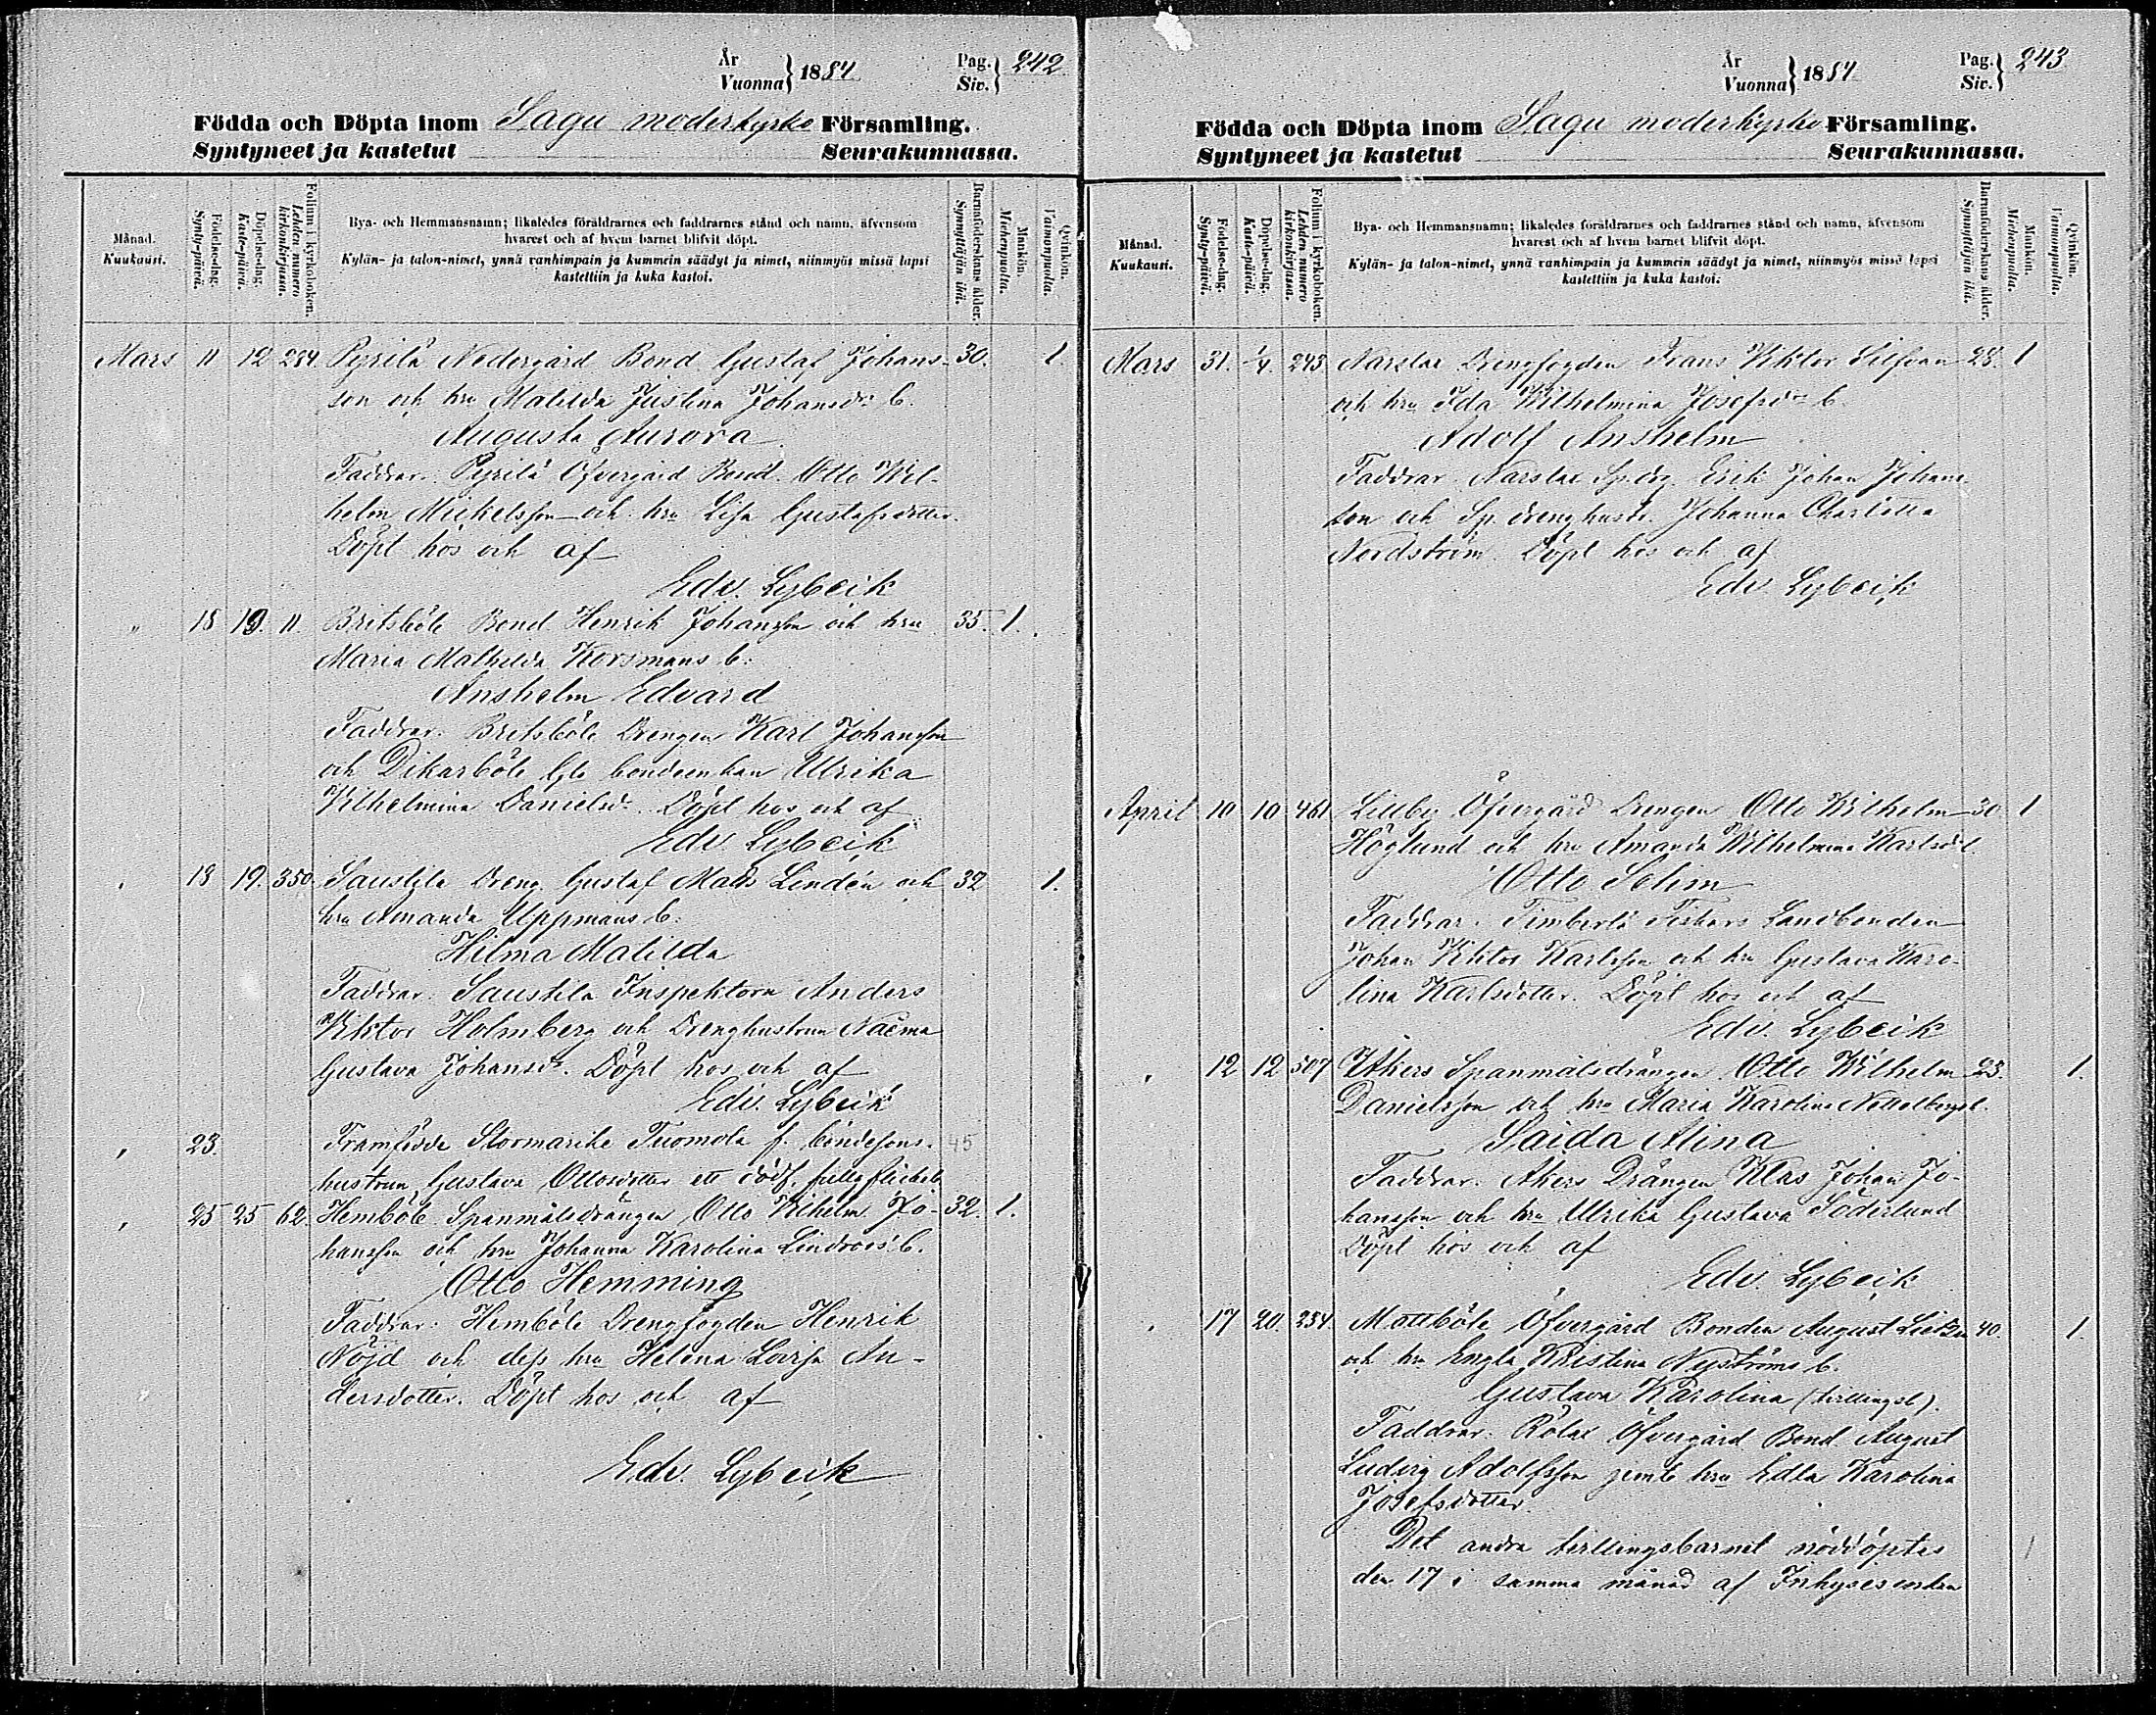 År
Vuonna } 1884
Pag.
Siv. } 242
Födda och Döpta inom Sagu moderkyrko Församling.
Syntyneet ja kastetut Seurakunnassa.
Månad.
Kuukausi.
Födelse-dag.
Synty-päivä.
Döpelse-dag.
Kaste-päivä.
Folium i kyrkoboken.
Lehden numero kirkonkirjassa.
Bya- och Hemmansnamn; likaledes föräldrarnes och faddrarnes stånd och namn, äfvensom
hvarest och af hvem barnet blifvit döpt.
Kylän- ja talon-nimet, ynnä vanhimpain ja kummein säädyt ja nimet, niinmyös missä lapsi
kastettiin ja kuka kastoi.
Barnaföderskans ålder.
Synnyttäjän ikä.
Mankön.
Miehenpuolia.
Qvinkön.
Vaimonpuolia.
Mars 11 12 284 Pyrilä Nedergård Bond. Gustaf Johans- 30. 1.
son och hru Matilda Justina Johansdr b.
Augusta Aurora
Faddrar. Pyrilä Öfvergård Bond. Otto Wil-
helm Mickelsson och hru Lisa Gustafsdotter.
Döpt hos och af
Edv. Lybeck
" 18 19. 11. Britsböle Bond. Henrik Johansson och hru 35. 1.
Maria Mathilda Korsmans b.
Anshelm Edvard
Faddrar. Britsböle Drengen Karl Johansson
och Dikarböle Gle bondeenkan Ulrika
Vilhelmina Danielsdr. Döpt hos och af
Edv. Lybeck
" 18 19. 350 Saustila Dreng. Gustaf Mats Lindén och 32 1.
hru Amanda Uppmans b.
Hilma Matilda
Faddrar. Saustila Inspektorn Anders
Viktor Holmberg och Drenghustrun Naëma
Gustava Johansdr. Döpt hos och af
Edv. Lybeck
" 23. Framfödde Stormarike Tuomola f. bondesons- 45
hustrun Gustava Ottosdotter ett dödf. fullg. flickeb.
" 25 25 62. Hemböle Spanmålsdrängen Otto Vilhelm Jo- 32. 1.
hansson och hru Johanna Karolina Lindroos b.
Otto Hemming
Faddrar. Hemböle Drengfogden Henrik
Nöjd och dess hru Helena Lovisa An-
dersdotter. Döpt hos och af
Edv. Lybeck
År
Vuonna } 1884
Pag.
Siv. } 243
Födda och Döpta inom Sagu moderkyrko Församling.
Syntyneet ja kastetut Seurakunnassa.
Månad.
Kuukausi.
Födelse-dag.
Synty-päivä.
Döpelse-dag.
Kaste-päivä.
Folium i kyrkoboken.
Lehden numero kirkonkirjassa.
Bya- och Hemmansnamn; likaledes föräldrarnes och faddrarnes stånd och namn, äfvensom
hvarest och af hvem barnet blifvit döpt.
Kylän- ja talon-nimet, ynnä vanhimpain ja kummein säädyt ja nimet, niinmyös missä lapsi
kastettiin ja kuka kastoi.
Barnaföderskans ålder.
Synnyttäjän ikä.
Mankön.
Miehenpuolia.
Qvinkön.
Vaimonpuolia.
Mars 31. 1/4. 243 Narslax Drengfogden Frans Viktor Silfvan 28. 1
och hru Ida Wilhelmina Josefsdr b.
Adolf Anshelm
Faddrar. Narslax Sp.drg Erik Johan Johans-
son och Sp. drenghustr. Johanna Charlotta
Nordström. Döpt hos och af
Edv. Lybeck
April 10 10 461 Lillby Öfvergård Drengen Otto Wilhelm 30 1
Höglund och hru Amanda Wilhelmina Karlsdr b.
Otto Selim
Faddrar. Timberlä Fiskars Landbonden
Johan Viktor Karlsson och hru Gustava Karo-
lina Karlsdotter. Döpt hos och af
Edv. Lybeck
" 12 12 507 Åkers Spanmålsdrängen Otto Wilhelm 23. 1.
Danielsson och hru Maria Karolina Nettelbergs b.
Saida Alina
Faddrar. Åkers Drängen Klas Johan Jo-
hansson och hru Ulrika Gustava Söderlund
Döpt hos och af
Edv. Lybeck
" 17 20. 254. Mattböle Öfvergård Bonden August 40. 1.
och hru Engla Kristina Nyströms b.
Gustava Karolina (tvillingsb).
Faddrar. Rölax Öfvergård Bond. August
Ludvig Adolfsson jemte hru Edla Karolina
Josefsdotter.
Det andra tvillingsbarnet nöddöptes
den 17 i samma månad af Inhysesenkan